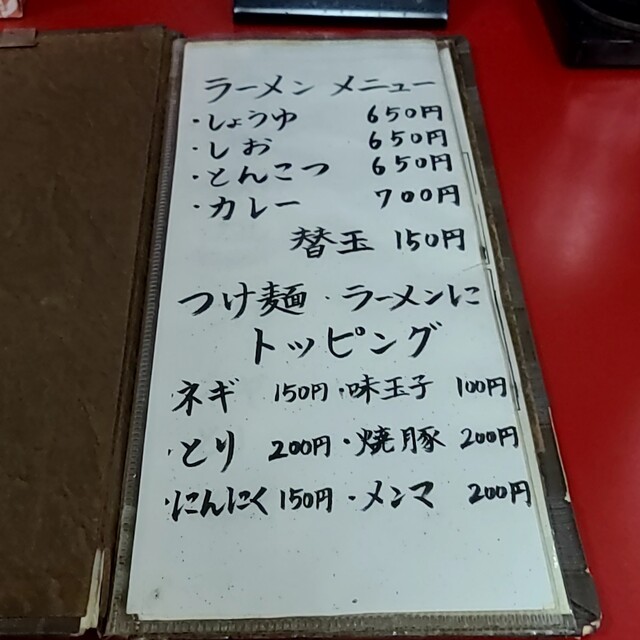 ラーメン メニュー
・しょうゆ 650円
・しお 650円
・とんこつ 650円
・カレー 700円
替玉 150円
つけ麺・ラーメンに
トッピング
ネギ 150円・味玉子 100円
・とり 200円・焼豚 200円
・にんにく 150円・メンマ 200円